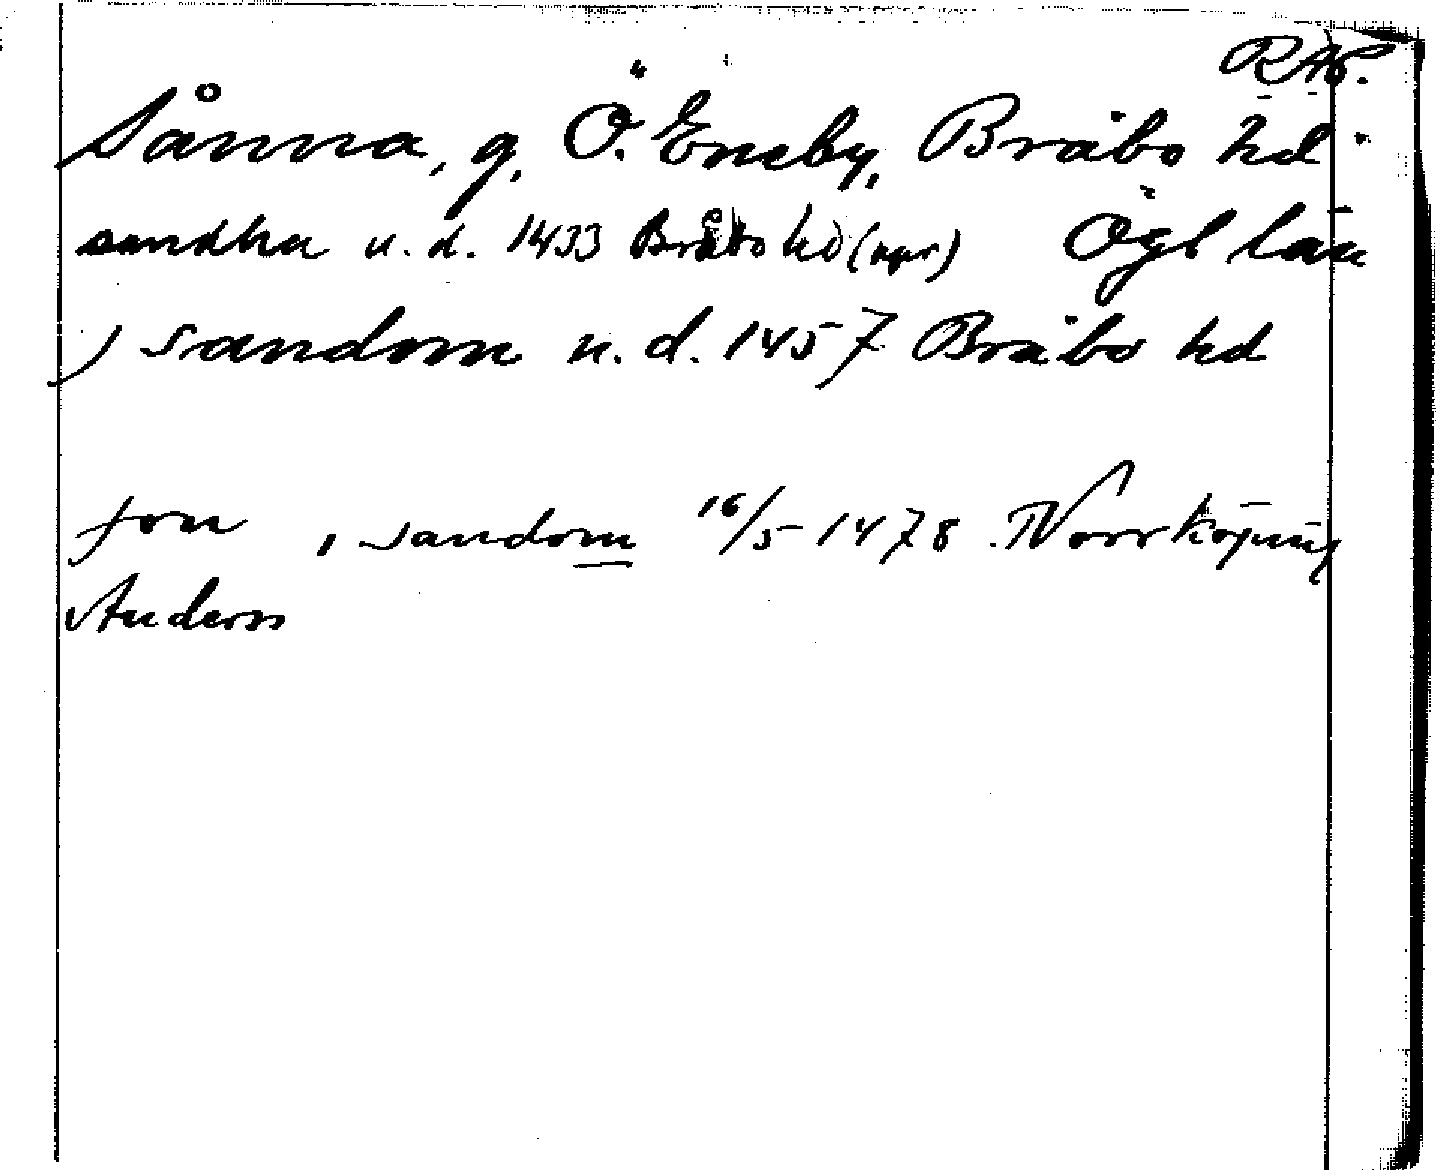 RAP.
Sånna, g, Ö. Eneby, Bråbo hd
sandha u. d. 1433 Bråbo hd (opr) Ögl län
) sandom u. d. 1457 Bråbo hd
Jon , sandom 16/5 1478 Norrköping
Anders